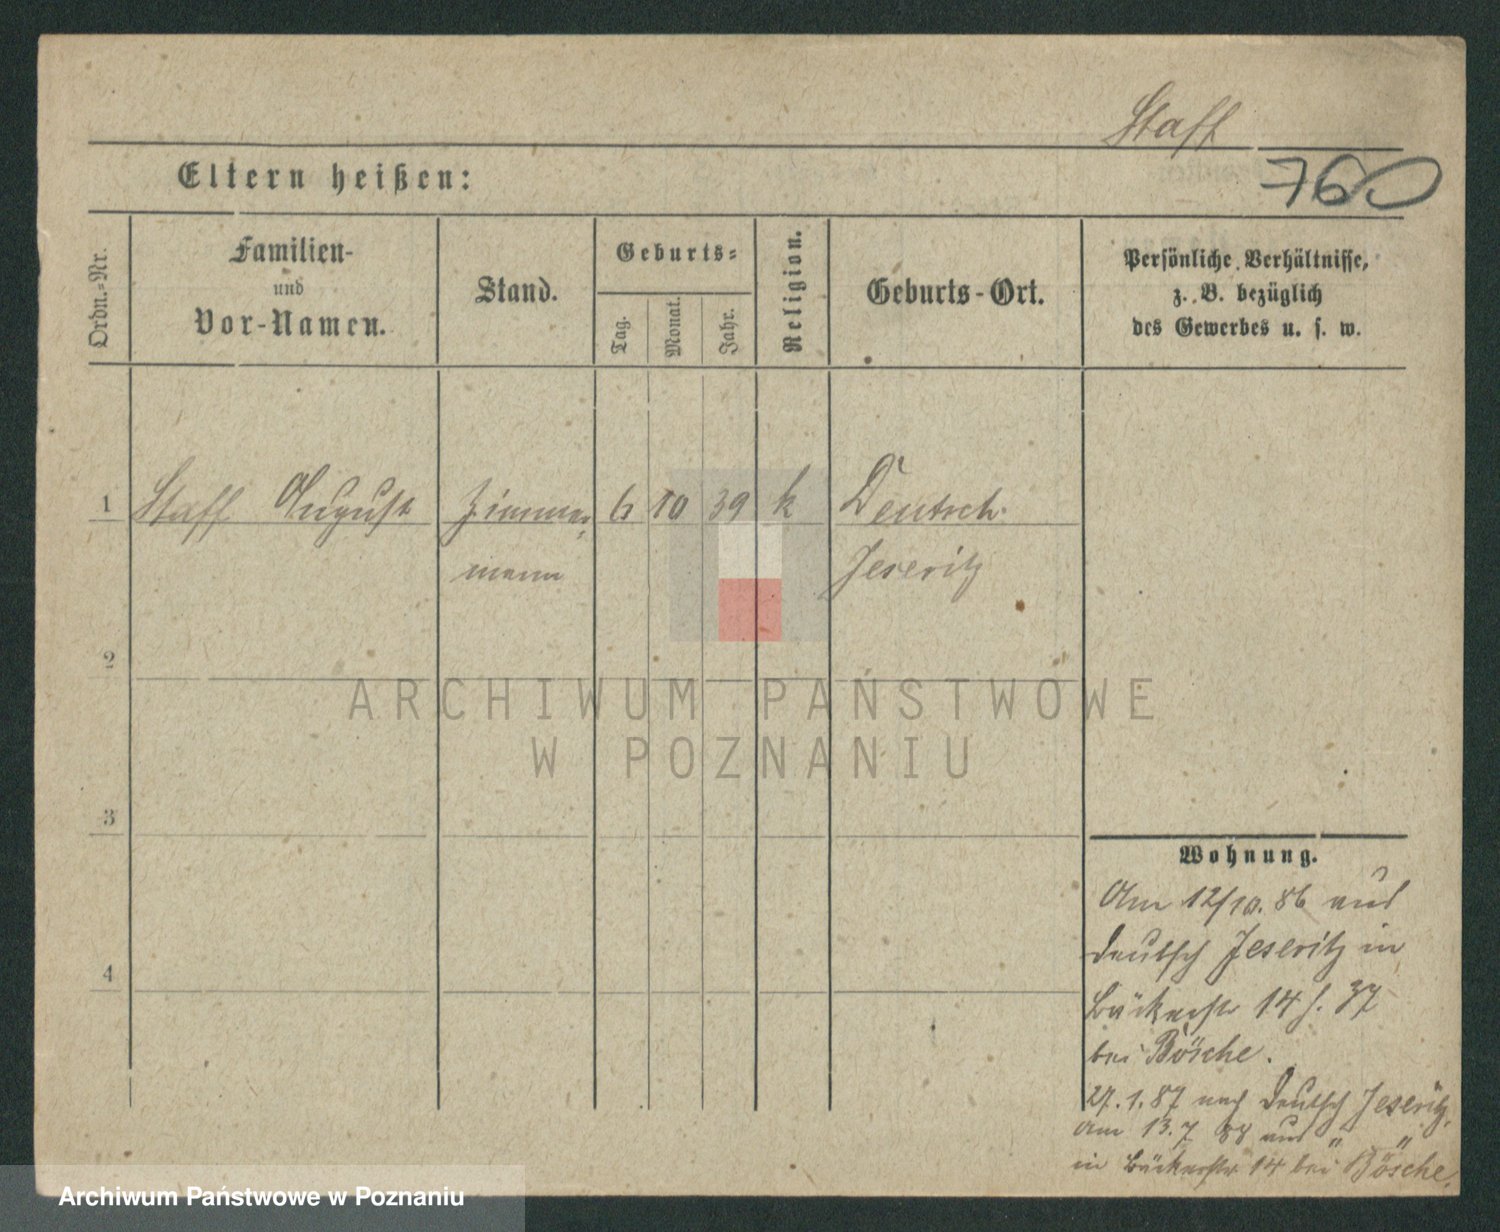 Staff
760
Eltern heißen:
Ordn.-Nr.
Familien-
und
Vor-Namen.
Stand.
Geburts-
Tag.
Monat.
Jahr.
Religion.
Geburts-Ort.
Persönliche Verhältnisse,
z. B. bezüglich
des Gewerbes u. s. w.
1 Staff August Zimmer- 6 10 39 k Deutsch
mann Jeseritz
2
3
4
Wohnung.
Am 12/10. 86 aus
Deutsch Jeseritz in
Bäckerstr 14 37
bei Bösche.
27.1.87 nach Deutsch Jeseritz.
Am 13.7 88 aus " "
in Bäckerstr 14 bei Bösche.
ARCHIWUM PAŃSTWOWE
W POZNANIU
Archiwum Państwowe w Poznaniu